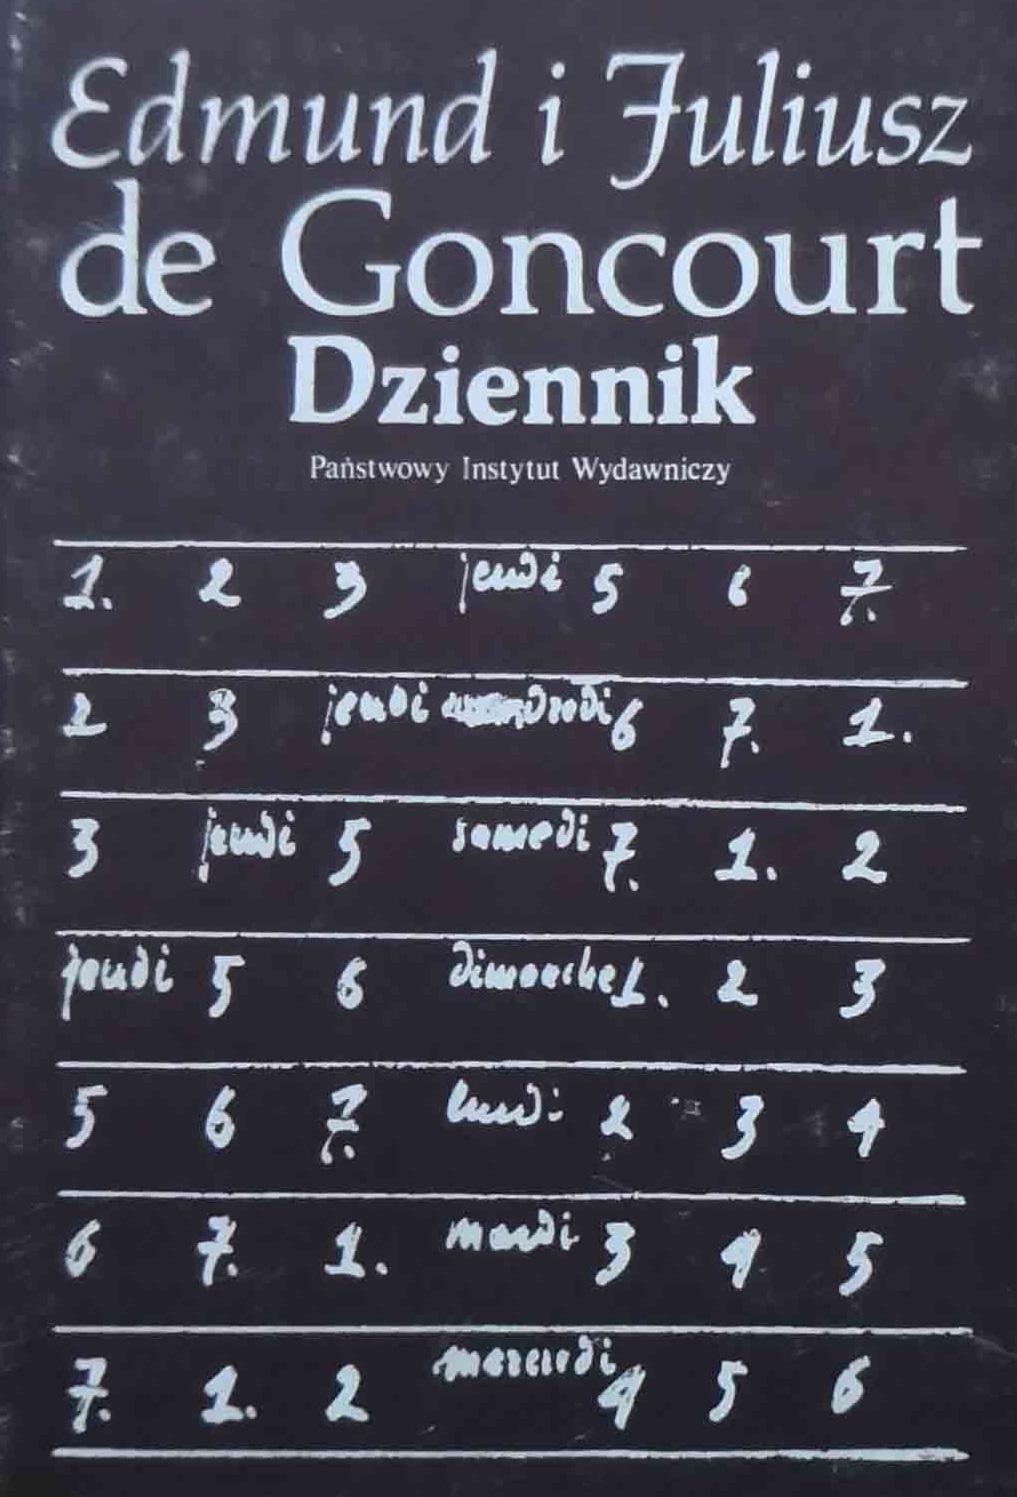 Edmund i Juliusz
de Goncourt
Dziennik
Państwowy Instytut Wydawniczy
1. 2 3 jeudi 5 6 7.
2 3 jeudi vendredi 6 7. 1.
3 jeudi 5 samedi 7. 1. 2
jeudi 5 6 dimanche 1. 2 3
5 6 7. lundi 2 3 4
6 7. 1. mardi 3 4 5
7. 1. 2 mercredi 4 5 6